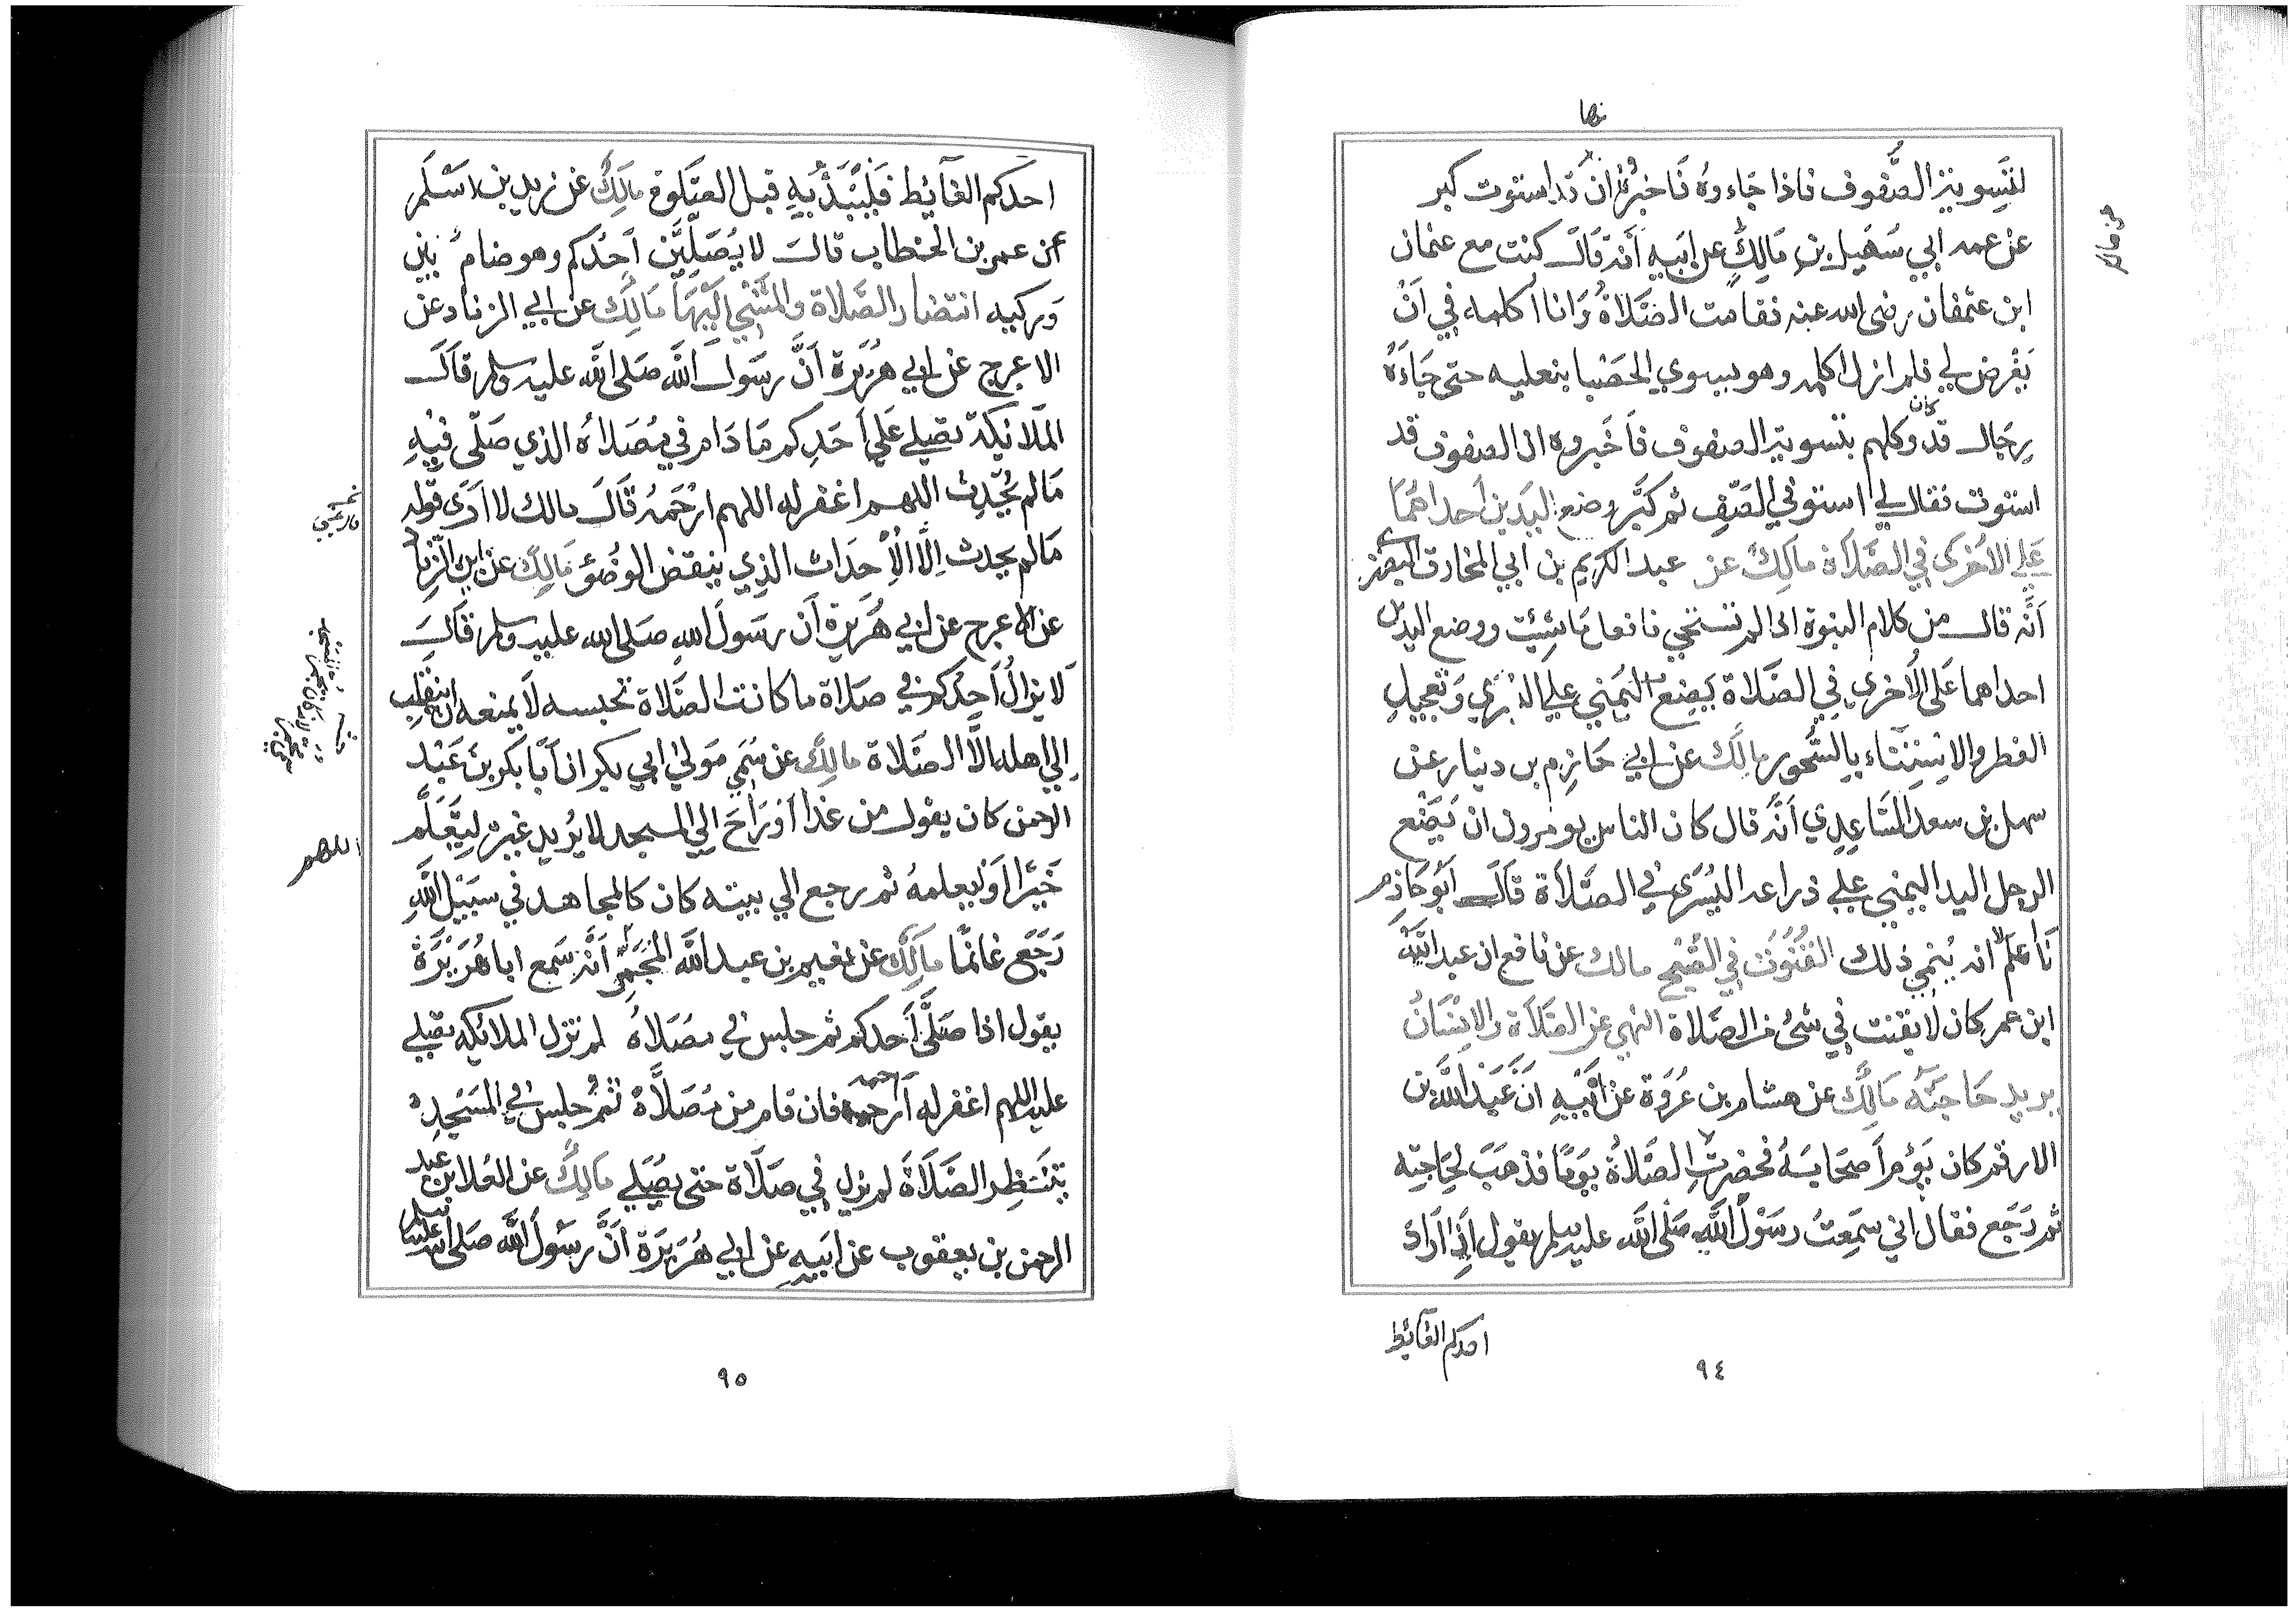 بتسوية الصفوف فاذا جاءوه فاخبروه ان قد استوت كبر
عن عمه ابي سهيل بن مالك عن ابيه انه قال كنت مع عثمان
ابن عفان رضى الله عنه فقامت الصلاة وانا اكلمه في ان
يفرض لي فلم ازل اكلمه وهو يسوي الحصبا بنعليه حتى جاءه
رجال قد كان وكلهم بتسوية الصفوف فاخبروه ان الصفوف قد
استوت فقال لي استو في الصف ثم كبر وضع اليدين احداهما
على الاخرى في الصلاة مالك عن عبد الكريم بن ابي المخارق البصري
انه قال من كلام النبوة اذا لم تستحي فافعل ما شيت ووضع اليدين
احداهما على الاخرى في الصلاة يضع اليمنى على اليسرى وتعجيل
الفطر والاستيناء بالسحور مالك عن ابي حازم بن دينار عن
سهل بن سعد الساعدي انه قال كان الناس يومرون ان يضع
الرجل اليد اليمنى على ذراعه اليسرى في الصلاة قال ابو حازم
لا اعلم الا انه ينمي ذلك القنوت في الصبح مالك عن نافع ان عبد الله
ابن عمر كان لا يقنت في شئ من الصلاة النهي عن الصلاة والانسان
يريد حاجته مالك عن هشام بن عروة عن ابيه ان عبد الله بن
الارقم كان يؤم اصحابه فحضرت الصلاة يوما فذهب لحاجته
ثم رجع فقال اني سمعت رسول الله صلى الله عليه وسلم يقول اذا اراد
احدكم الغائط
٩٤
احدكم الغائط فليبدأ به قبل الصلوة مالك عن زيد بن اسلم
عن عمر بن الخطاب قال لا يصلين احدكم وهو ضام بين
وركيه انتضار الصلاة والمشي اليها مالك عن ابي الزناد عن
الاعرج عن ابي هريرة ان رسول الله صلى الله عليه وسلم قال
الملائيكة تصلي على احدكم ما دام في مصلاه الذي صلى فيه
مالم يحدث اللهم اغفر له اللهم ارحمه قال مالك لا ارى قوله
مالم يحدث الا الاحداث الذي ينقض الوضؤ مالك عن ابي الزناد
عن الاعرج عن ابي هريرة ان رسول الله صلى الله عليه وسلم قال
لا يزال احدكم في صلاة ما كانت الصلاة تحبسه لا يمنعه ان ينقلب
الى اهله الا الصلاة مالك عن سمي مولى ابي بكر ان ابا بكر بن عبد
الرحمن كان يقول من غدا او راح الى المسجد لا يريد غيره ليتعلم
خيرا او ليعلمه ثم رجع الى بيته كان كالمجاهد في سبيل الله
رجع غانما مالك عن نعيم بن عبد الله المجمر انه سمع ابا هريرة
يقول اذا صلى احدكم ثم جلس في مصلاه لم تزل الملائكه تصلي
عليه اللهم اغفر له ارحمه فان قام من مصلاه ثم جلس في المسجد
ينتظر الصلاة لم يزل في صلاة حتى يصلي مالك عن العلا بن عبد
الرحمن بن يعقوب عن ابيه عن ابي هريرة ان رسول الله صلى الله عليه وسلم
اللهم
٩٥